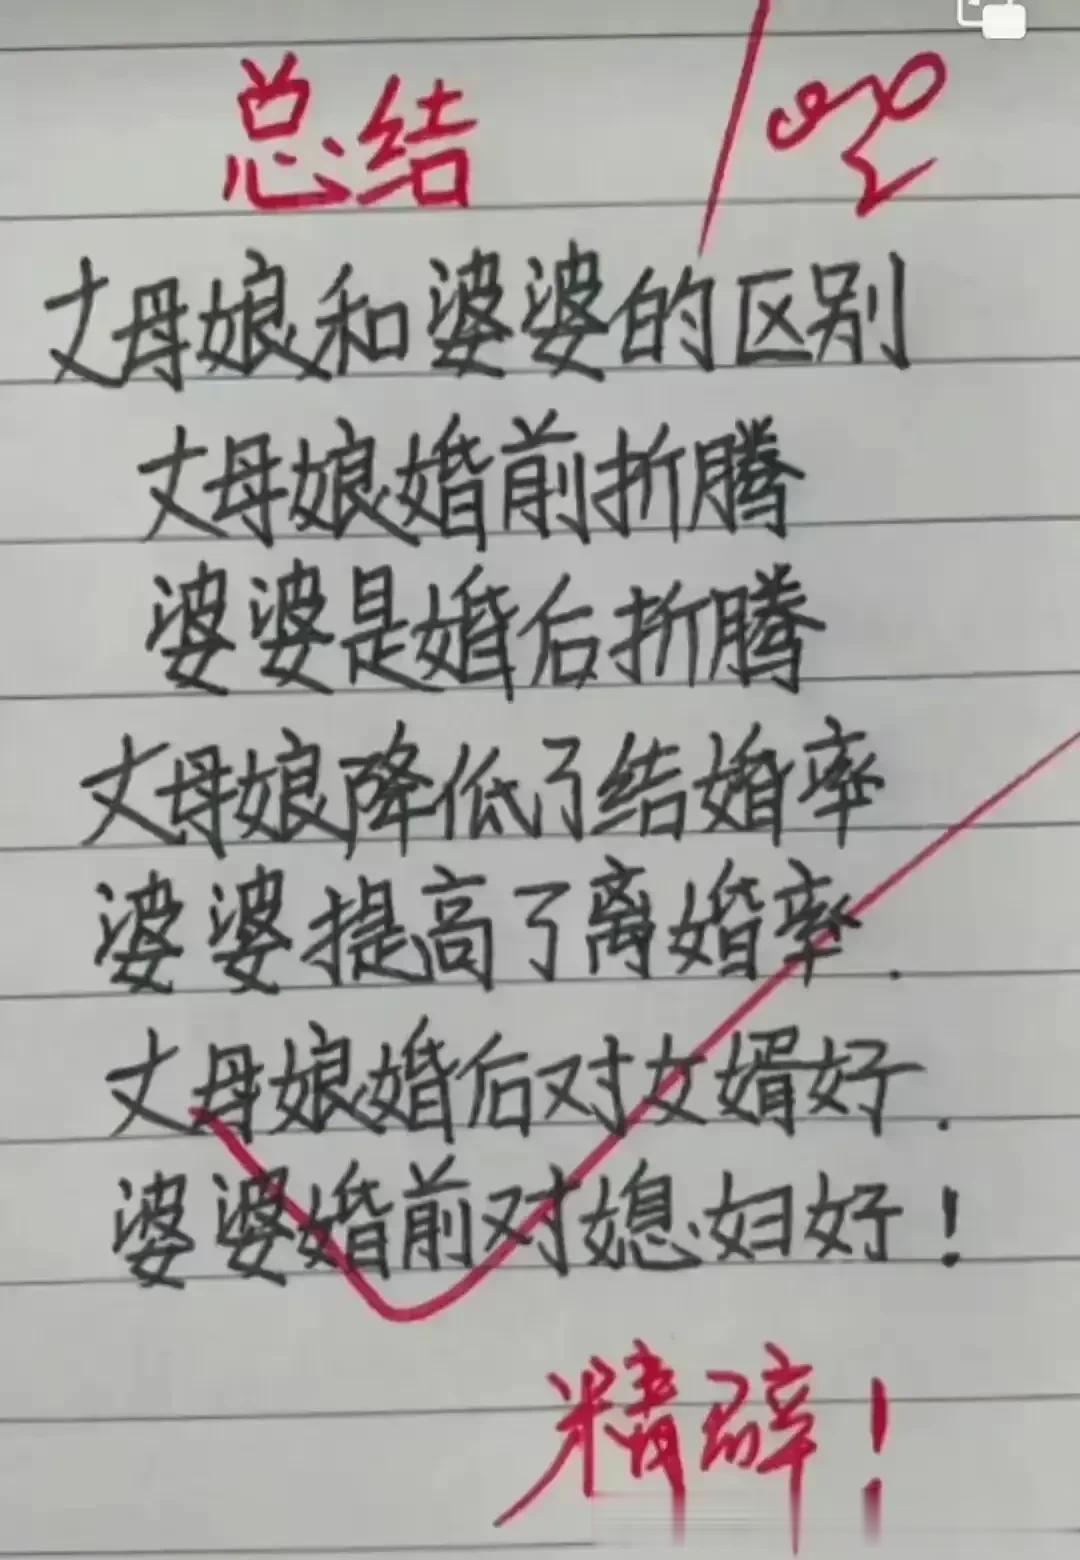 总结
丈母娘和婆婆的区别
丈母娘婚前折腾
婆婆是婚后折腾
丈母娘降低了结婚率
婆婆提高了离婚率.
丈母娘婚后对女婿好.
婆婆婚前对媳妇好!
精辟!